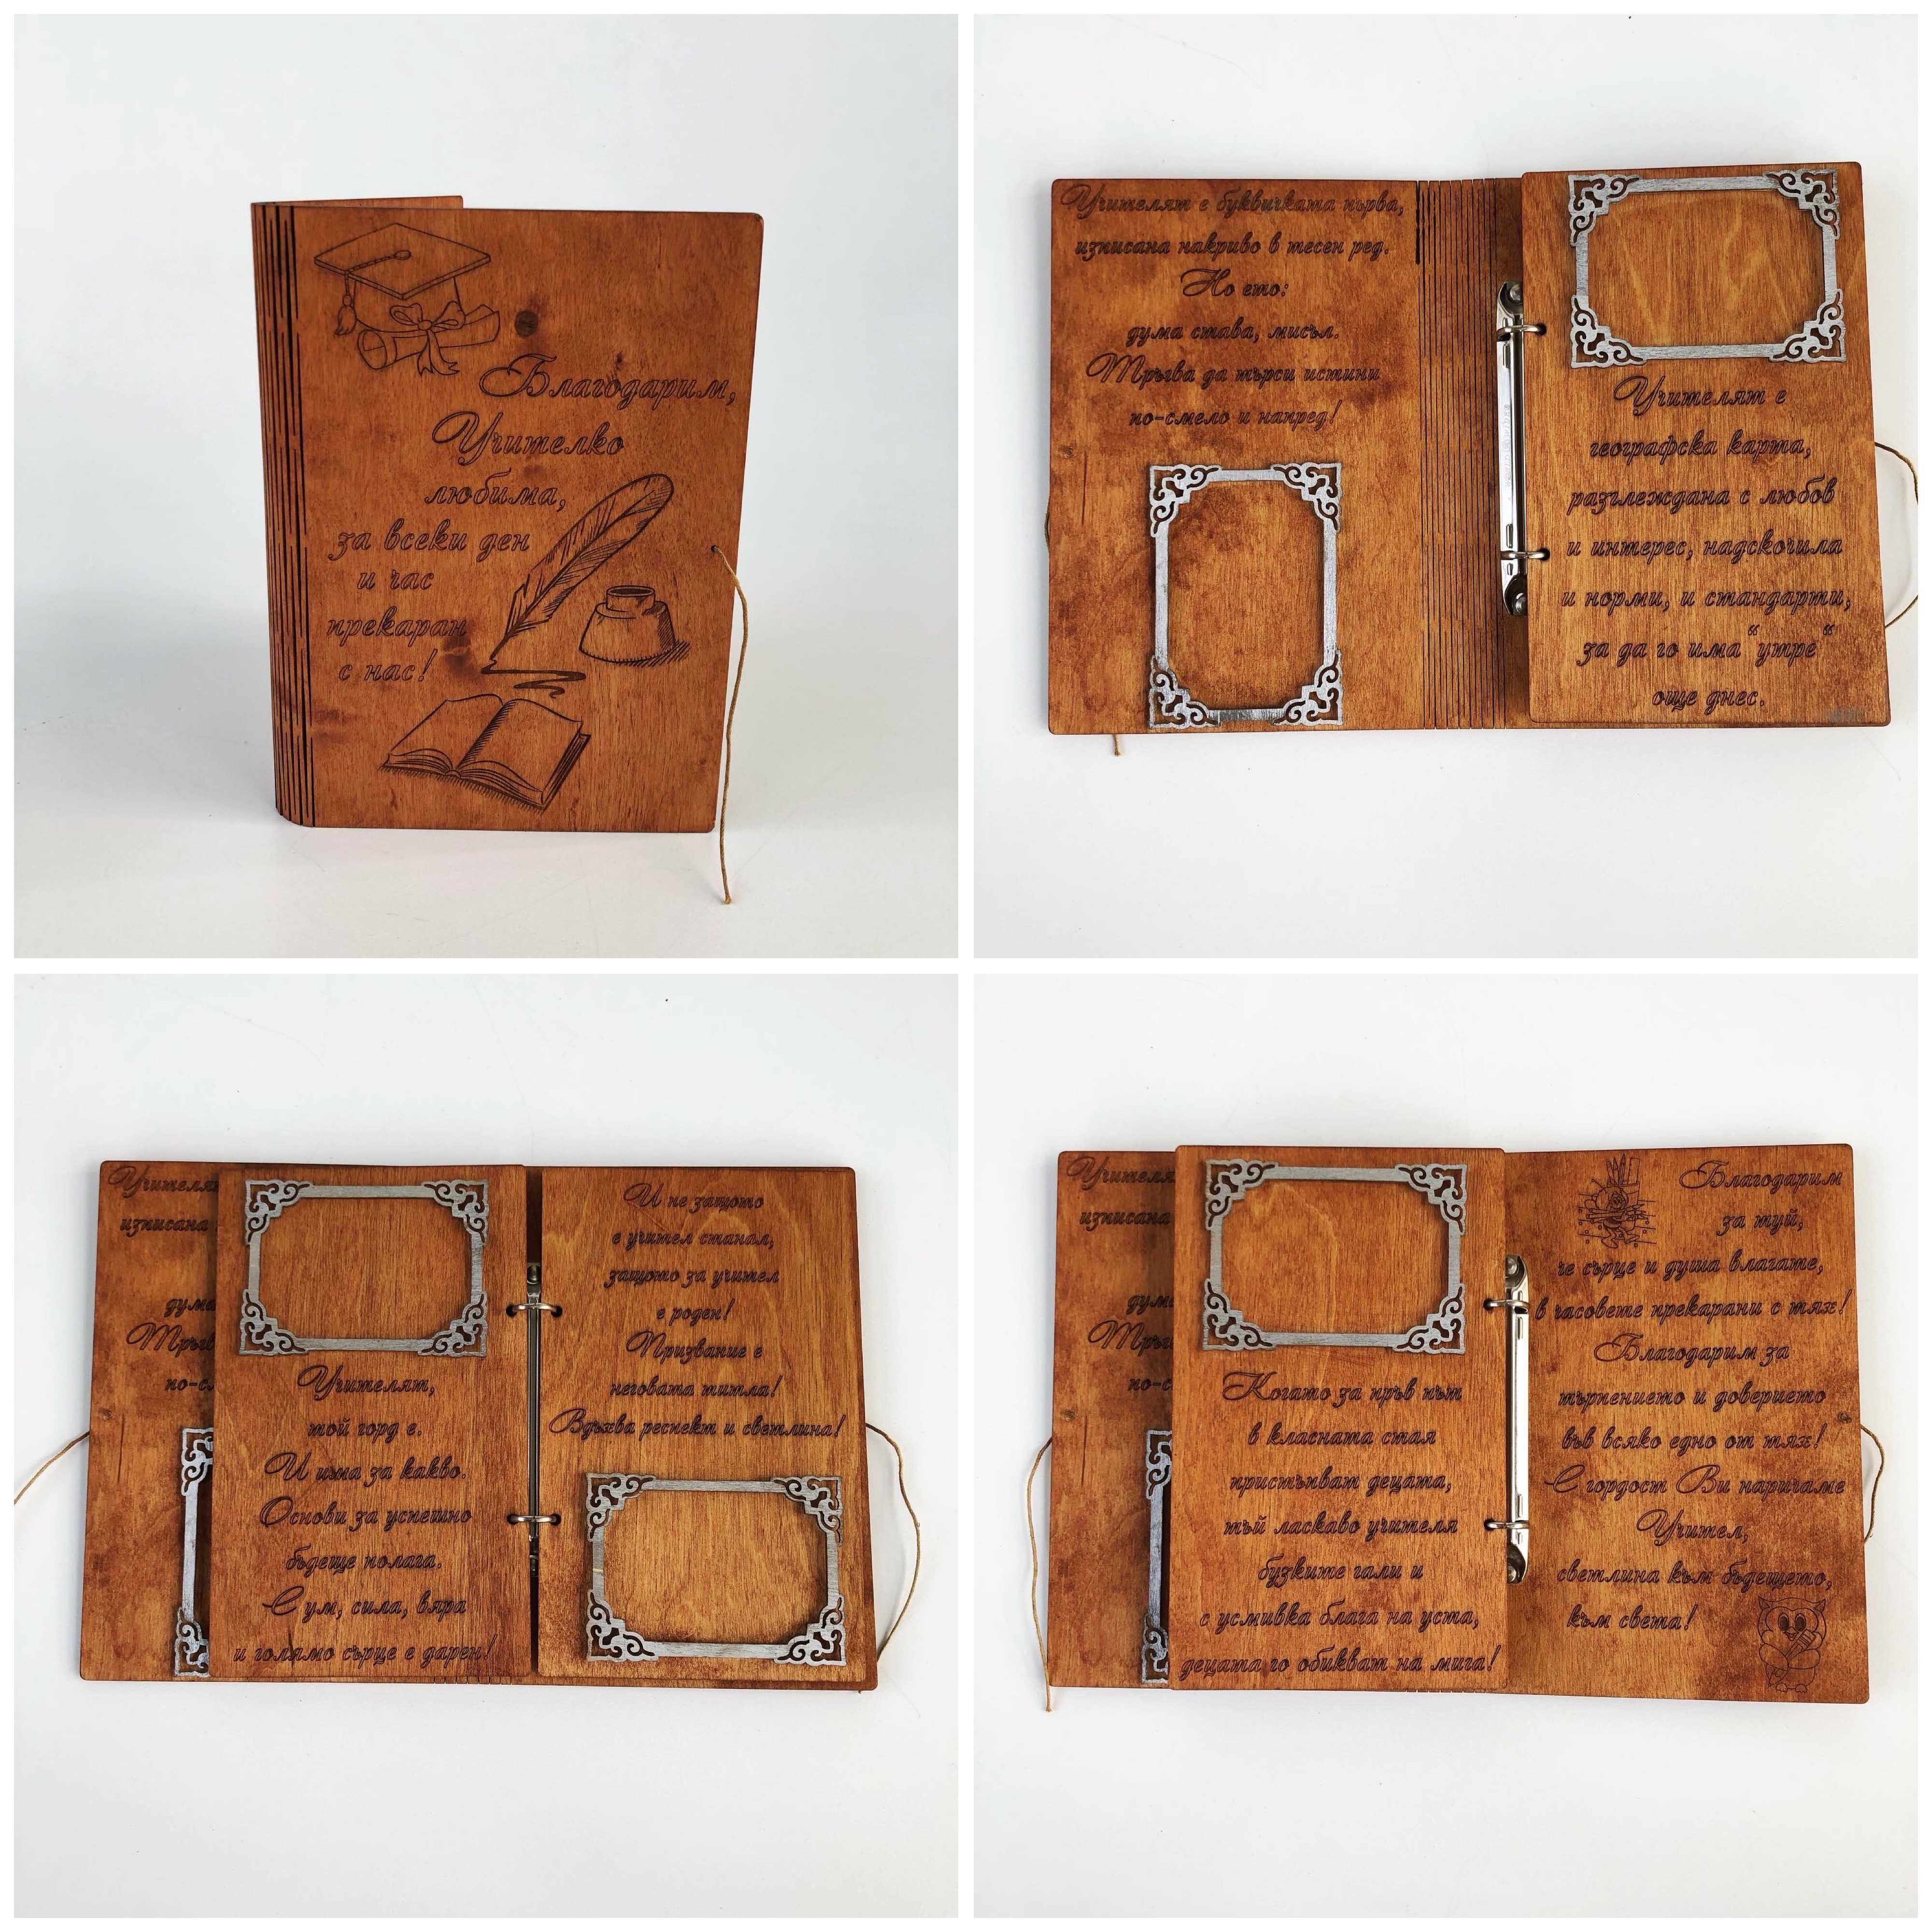 Благодарим,
Учителко
любима,
за всеки ден
и час
прекаран
с нас!
Учителят е буквичката първа,
изписана накриво в тесен ред.
Но ето:
дума става, мисъл.
Тръгва да търси истини
по-смело и напред!
Учителят е
географска карта,
разглеждана с любов
и интерес, надскочила
и норми, и стандарти,
за да го има “утре“
още днес.
Учителят,
той горд е.
И има за какво.
Основи за успешно
бъдеще полага.
С ум, сила, вяра
и голямо сърце е дарен!
И не защото
е учител станал,
защото за учител
е роден!
Призвание е
неговата титла!
Вдъхва респект и светлина!
Когато за пръв път
в класната стая
пристъпват децата,
тъй ласкаво учителя
бузките гали и
с усмивка блага на уста,
децата го обикват на мига!
Благодарим
за туй,
че сърце и душа влагате,
в часовете прекарани с тях!
Благодарим за
търпението и доверието
във всяко едно от тях!
С гордост Ви наричаме
Учител,
светлина към бъдещето,
към света!